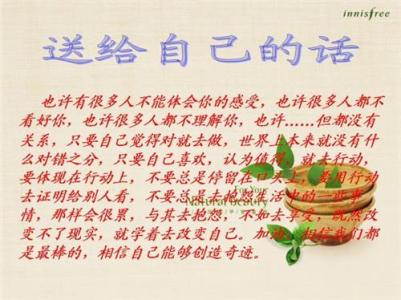 innisfree
送给自己的话
也许有很多人不能体会你的感受，也许很多人都不
看好你，也许很多人都不理解你，也许……但都没有
关系，只要自己觉得对就去做，世界上本来就没有什
么对错之分，只要自己喜欢，认为值得，就去行动，
要体现在行动上，不要总是停留在口头上，要用行动
去证明给别人看，不要总是去抱怨生活中的一些事
For Your
Natural Beauty
情，那样会很累，与其去抱怨，不如去享受，既然改
变不了现实，就学着去改变自己。加油，相信我们都
是最棒的，相信自己能够创造奇迹。